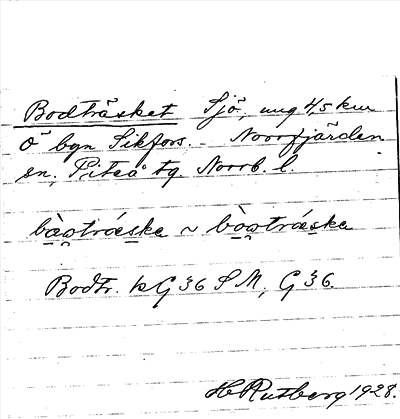 Bodträsket Sjö, ung 4,5 km
Ö bgn Sikfors. - Norrfjärden
sn, Piteå tg Norrb. l.
bò̱o̱träska ~ bò̱o̱träska
Bodtr. k G 36 S M, G 36.
H Rutberg 1928.